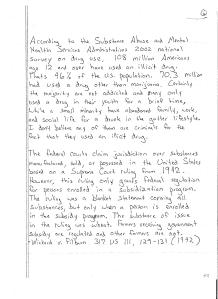 According to the Substance Abuse and Mental
Health Services Administrations 2002 national
survey on drug use, 108 million Americans
age 12 and over have used an illicit drug.
Thats 46% of the U.S. population. 70.3 million
had used a drug other than marijuana. Certainly
the majority are not addicted and many only
used a drug in their youth for a brief time,
while a small minority have abandoned family, work,
and social life for a drunk in the gutter lifestyle.
I don't believe any of them are criminals for the
fact that they used an illicit drug.
The federal courts claim jurisdiction over substances
manufactured, sold, or possessed in the United States
based on a Supreme Court ruling from 1942.
However, this ruling only grants federal regulation
for persons enrolled in a subsidization program.
The ruling was a blanket statement covering all
substances, but only when a person is enrolled
in the subsidy program. The substance of issue
in the ruling was wheat. Farmers receiving government
subsidy are regulated and other farmers are not.
Wickard v. Filburn 317 US 111, 129-131 (1942)